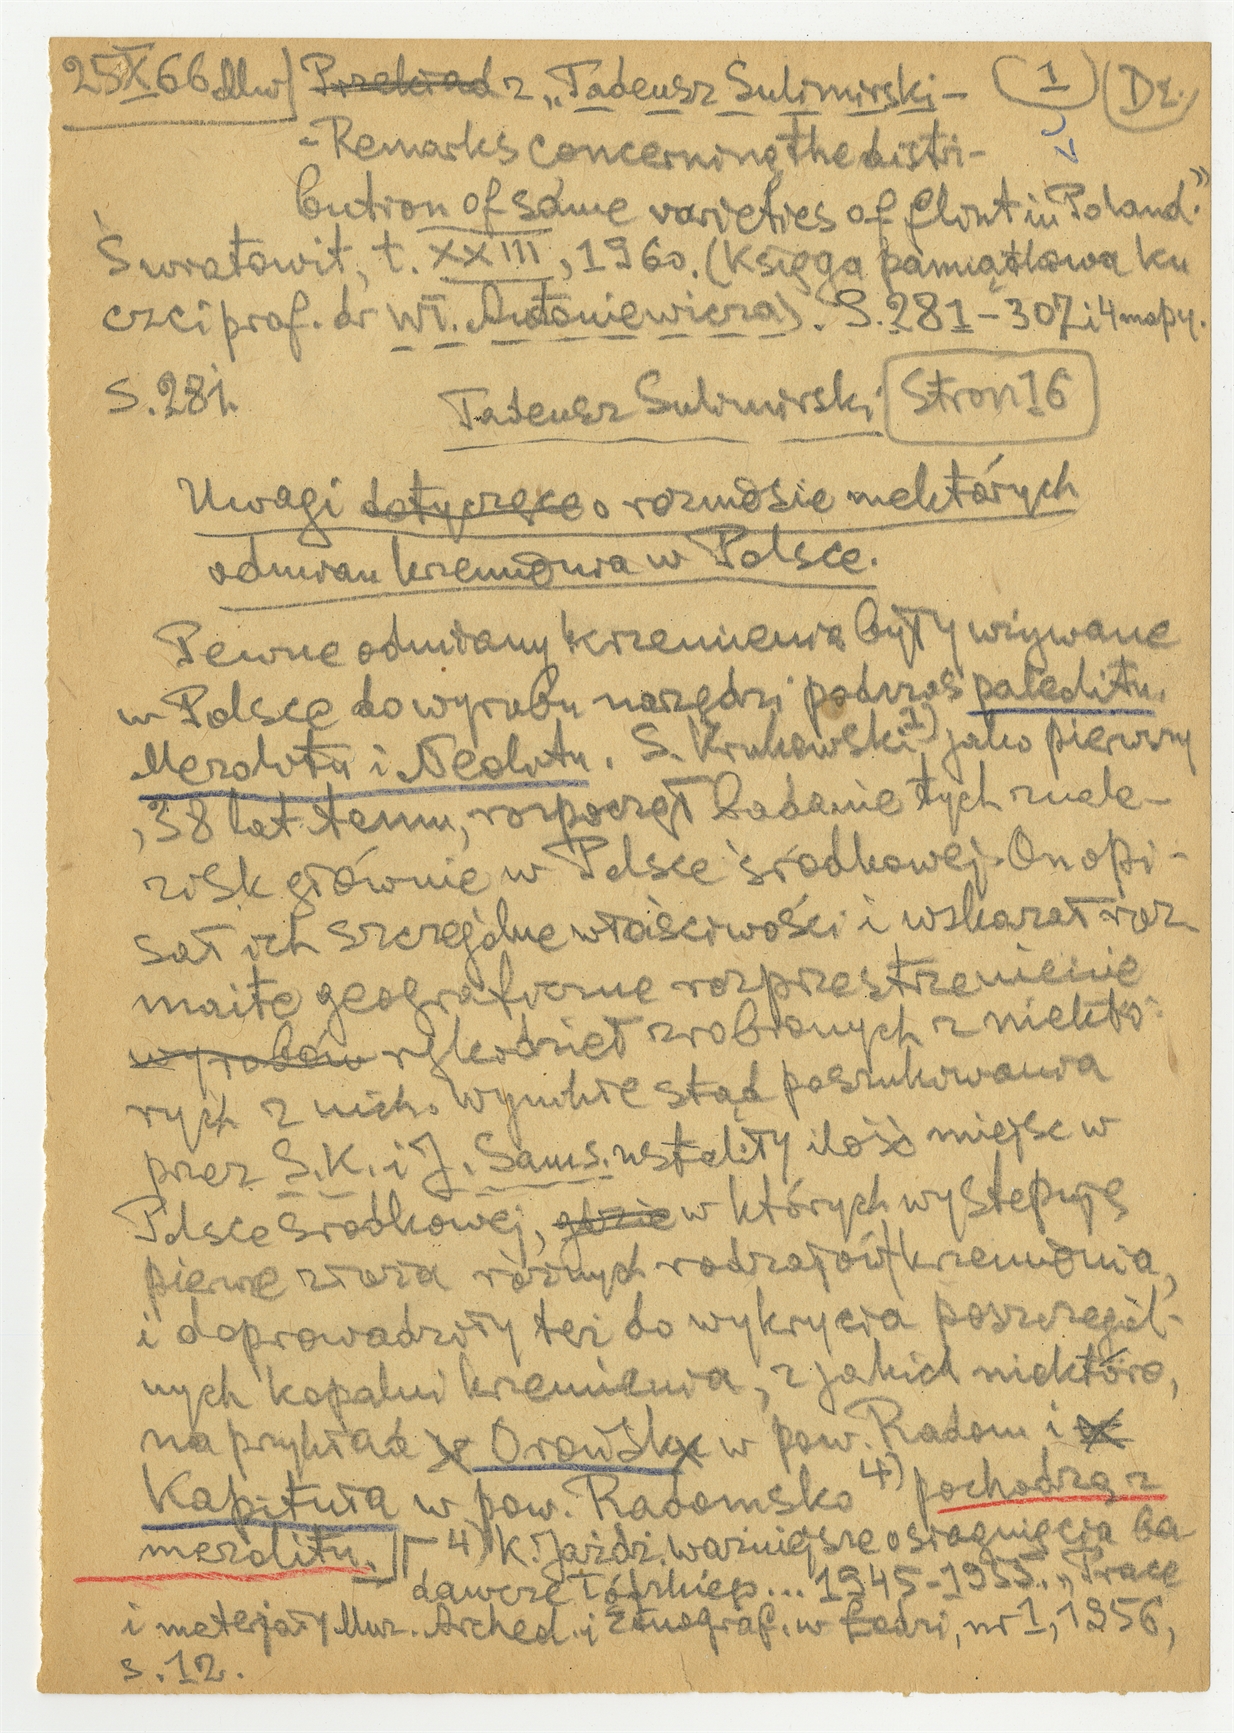 25 X 66 Mw] Przekład z „Tadeusz Sulimirski – (1) (Dz.)
– Remarks concerning the distri-
bution of some varieties of flint in Poland.”
Światowit, t. XXIII, 1960. (Księga pamiątkowa ku
czci prof. dr Wł. Antoniewicza). S. 281 – 307 i 4 mapy.
S. 281. Tadeusz Sulimirski Stron 16
Uwagi dotyczące o roznosie niektórych
odmian krzemienia w Polsce.
Pewne odmiany krzemienia były używane
w Polsce do wyrobu narzędzi podczas paleolitu,
Mezolitu i Neolitu. S. Krukowski 1) jako pierwszy
, 38 lat temu, rozpoczął badanie tych znale-
zisk głównie w Polsce środkowej. On opi-
sał ich szczególne właściwości i wskazał roz
maite geograficzne rozprzestrzenienie
wyrobów rękodzieł zrobionych z niektó-
rych z nich. Wynikłe stąd poszukiwania
przez S.K. i J. Sams. ustaliły ilość miejsc w
Polsce środkowej, gdzie w których występują
pierwe złoża różnych rodzajów krzemienia,
i doprowadziły też do wykrycia poszczegól-
nych kopalni krzemienia, z jakich niektóre,
na przykład w Orońsku w pow. Radom i w
Kapituła w pow. Radomsko 4) pochodzą z
mezolitu.] [4) K. Jażdż. ważniejsze osiągnięcia ba
dawcze łódzkiego ... 1945–1955. „Prace
i materjały Muz. Archeol. i Etnograf. w Łodzi, nr 1, 1956,
s. 12.